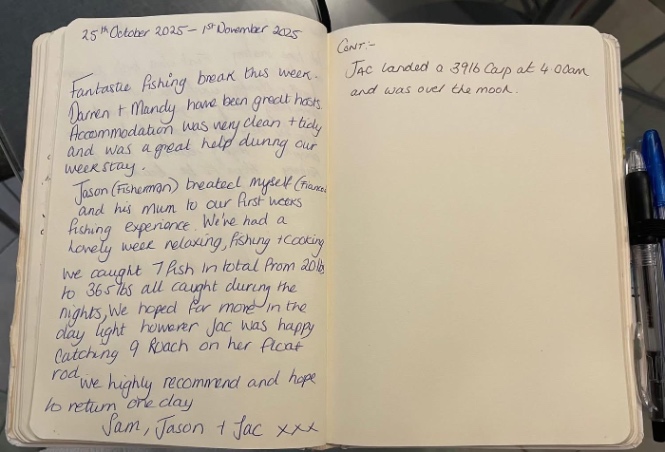 25th October 2025 – 1st November 2025
Fantastic fishing break this week.
Darren + Mandy have been great hosts
Accommodation was very clean + tidy
and was a great help during our
week stay.
Jason (Fisherman) treated myself (Fiancee
and his Mum to our first weeks
fishing experience. We've had a
lovely week relaxing, fishing + cooking
we caught 7 fish in total from 20lbs
to 36.5lbs all caught during the
nights, We hoped for more in the
day light however Jac was happy
Catching 9 Roach on her float
rod. We highly recommend and hope
to return one day
Sam, Jason + Jac xxx
CONT:-
JAC landed a 39lb Carp at 4.00am
and was over the moon.